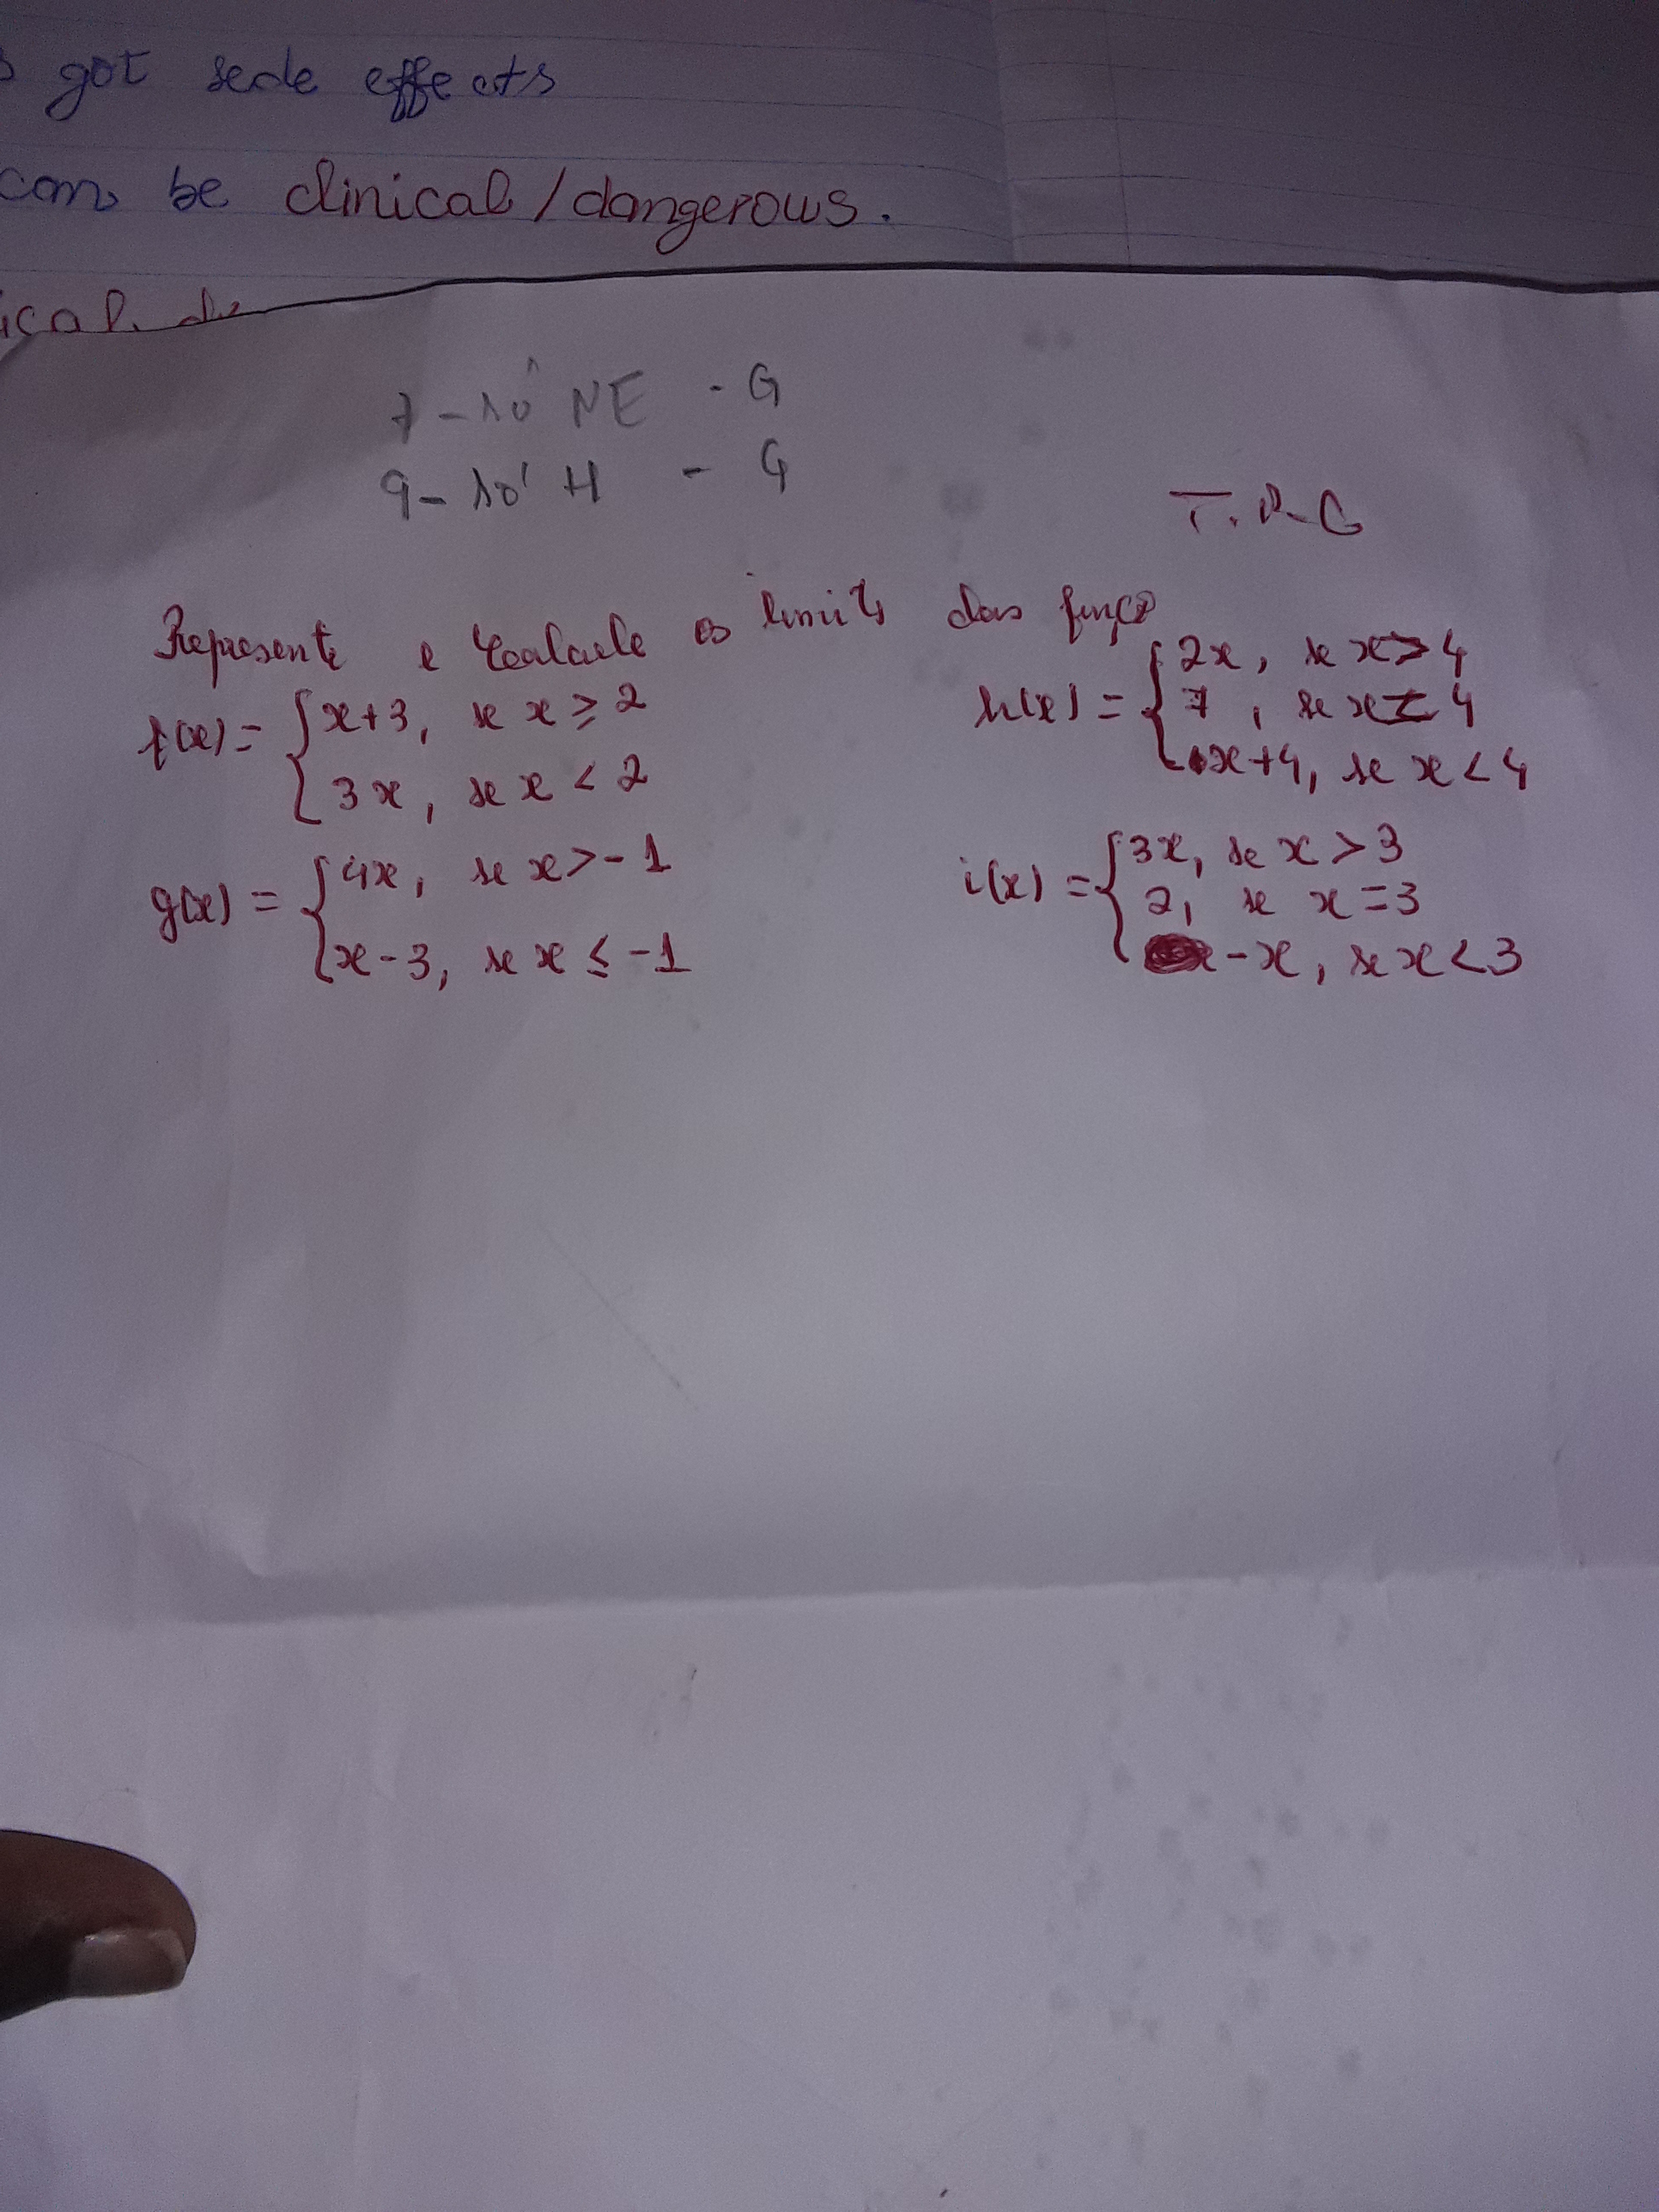 got sede effects
can be clinical/dangerous.
ical, d
7-10ª NE - G
9-10ª H - G
T.P.C
Represente e Calcule os limits das funçõ
f(x) = { x+3, se x ≥ 2
3x, se x < 2
g(x) = { 4x, se x > -1
x-3, se x ≤ -1
h(x) = { 2x, se x > 4
7, se x = 4
x+4, se x < 4
i(x) = { 3x, se x > 3
2, se x = 3
-x, se x < 3